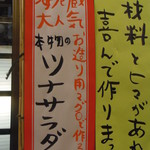 材料とヒマがあれ
喜んで作りま
お造り用マグロで作る
本物の
ツナサラダ